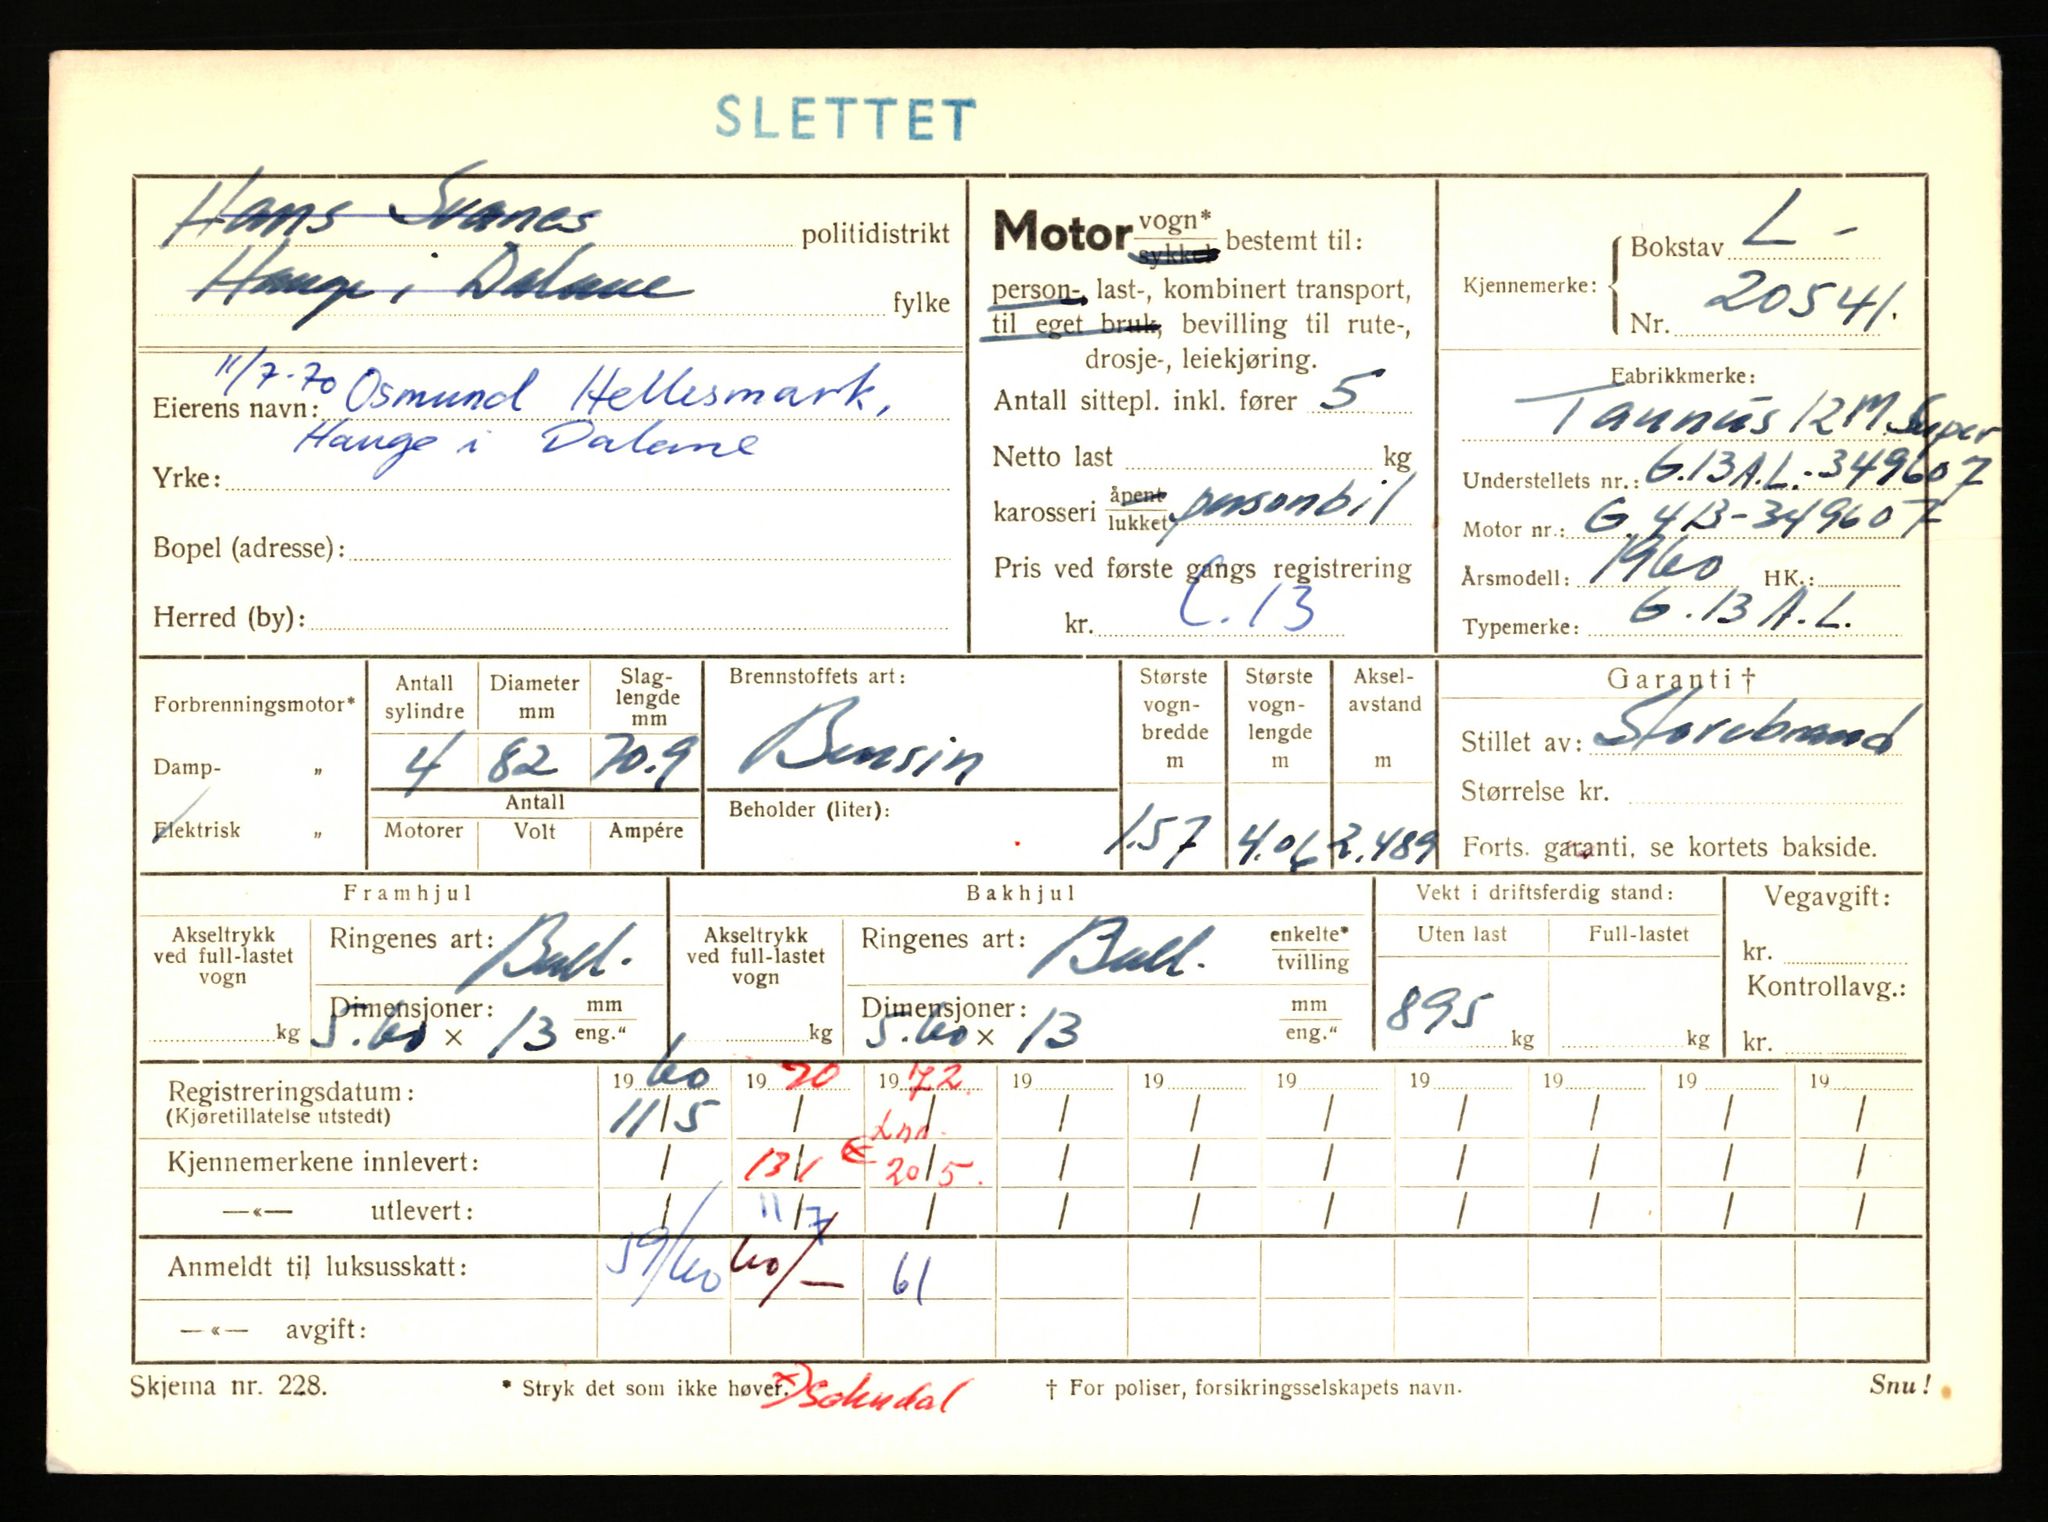 SLETTET
Hans Svanes politidistrikt
Hauge i Dalane fylke
11/7-70 Osmund Hellesmark,
Eierens navn:
Hauge i Dalane
Yrke:
Bopel (adresse):
Herred (by):
Motor vogn* sykkel bestemt til:
person-, last-, kombinert transport,
til eget bruk, bevilling til rute-,
drosje-, leiekjøring.
Antall sittepl. inkl. fører 5
Netto last kg
karosseri åpent lukket personbil
Pris ved første gangs registrering
kr. C.13
Kjennemerke: Bokstav L -
Nr. 20541.
Fabrikkmerke:
Taunus 12M Super
Understellets nr.: G.13A.L.-349607
Motor nr.: G.413-349607
Årsmodell: 1960 HK.:
Typemerke: G.13A.L.
Forbrenningsmotor*
Damp- „
Elektrisk „
Antall sylindre Diameter mm Slag-lengde mm
4 82 70.9
Antall
Motorer Volt Ampére
Brennstoffets art:
Bensin
Beholder (liter):
Største vogn-bredde m Største vogn-lengde m Aksel-avstand m
1.57 4.06 2.489
Garanti †
Stillet av: Storebrand
Størrelse kr.
Forts. garanti, se kortets bakside.
Framhjul
Akseltrykk ved full-lastet vogn kg
Ringenes art: Ball.
Dimensjoner: mm eng."
5.60 x 13
Bakhjul
Akseltrykk ved full-lastet vogn kg
Ringenes art: Ball. enkelte* tvilling
Dimensjoner: mm eng."
5.60 x 13
Vekt i driftsferdig stand:
Uten last Full-lastet
895 kg kg
Vegavgift:
kr.
Kontrollavg.:
kr.
Registreringsdatum: 19 60 19 70 19 72 19 19 19 19 19 19 19
(Kjøretillatelse utstedt) 11/5 / / / / / / / / /
Lnn.
Kjennemerkene innlevert: / 13/1 x 20/5. / / / / / / /
—«— utlevert: / 11/7 / / / / / / / /
Anmeldt til luksusskatt: 59/60 60/— 61
—«— avgift:
Skjema nr. 228. * Stryk det som ikke høver. x) Sokndal † For poliser, forsikringsselskapets navn. Snu!